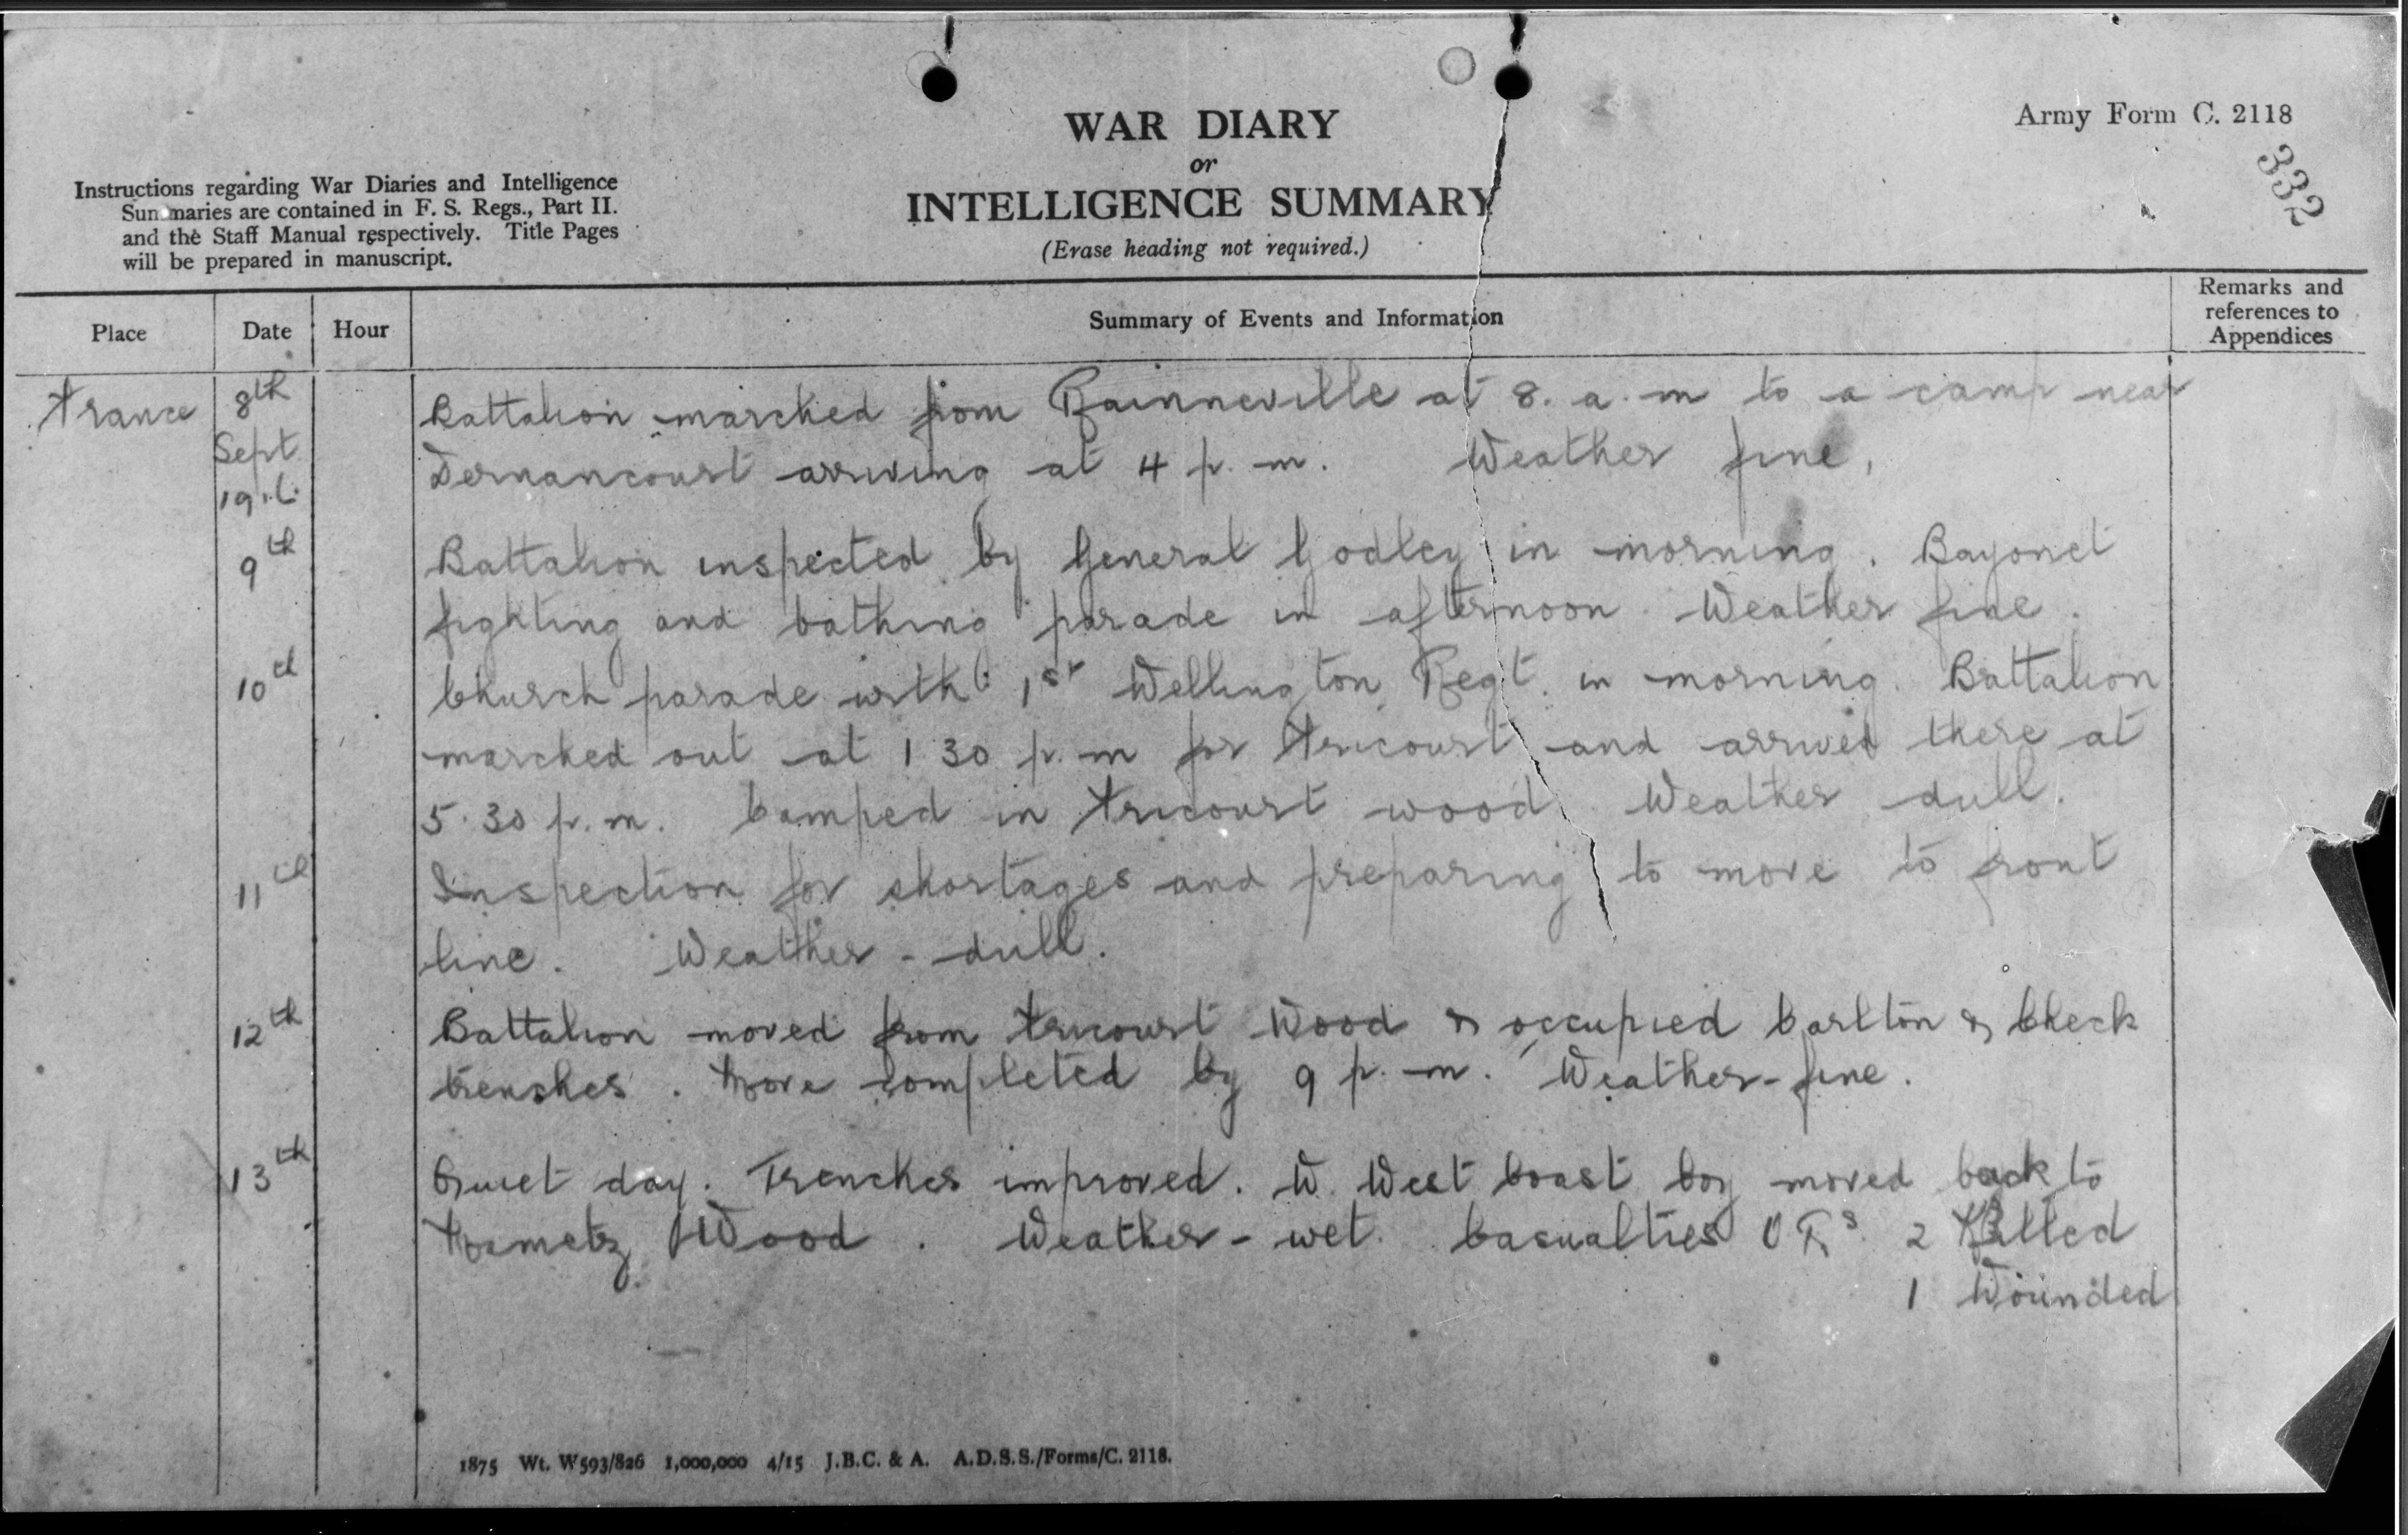 WAR DIARY
or
INTELLIGENCE SUMMARY
(Erase heading not required.)
Army Form C. 2118
332
Instructions regarding War Diaries and Intelligence
Summaries are contained in F. S. Regs., Part II.
and the Staff Manual respectively. Title Pages
will be prepared in manuscript.
Place Date Hour Summary of Events and Information Remarks and references to Appendices
France 8th Battalion marched from Rainneville at 8. a.m to a camp near
Sept Dernancourt arriving at 4 p.m. Weather fine,
1916
9th Battalion inspected by General Godley in morning. Bayonet
fighting and bathing parade in afternoon. Weather fine.
10th Church parade with 1st Wellington Regt. in morning. Battalion
marched out at 1 30 p.m for Fricourt and arrived there at
5.30 p.m. Camped in Fricourt wood. Weather dull.
11th Inspection for shortages and preparing to move to front
line. Weather - dull.
12th Battalion moved from Fricourt Wood & occupied Carlton & Check
trenches. Move completed by 9 p.m. Weather - fine.
13th Quiet day. Trenches improved. W. West Coast Coy moved back to
Mametz Wood. Weather - wet. Casualties O Rs. 2 Killed
1 Wounded
1875 Wt. W593/826 1,000,000 4/15 J.B.C. & A. A.D.S.S./Forms/C. 2118.